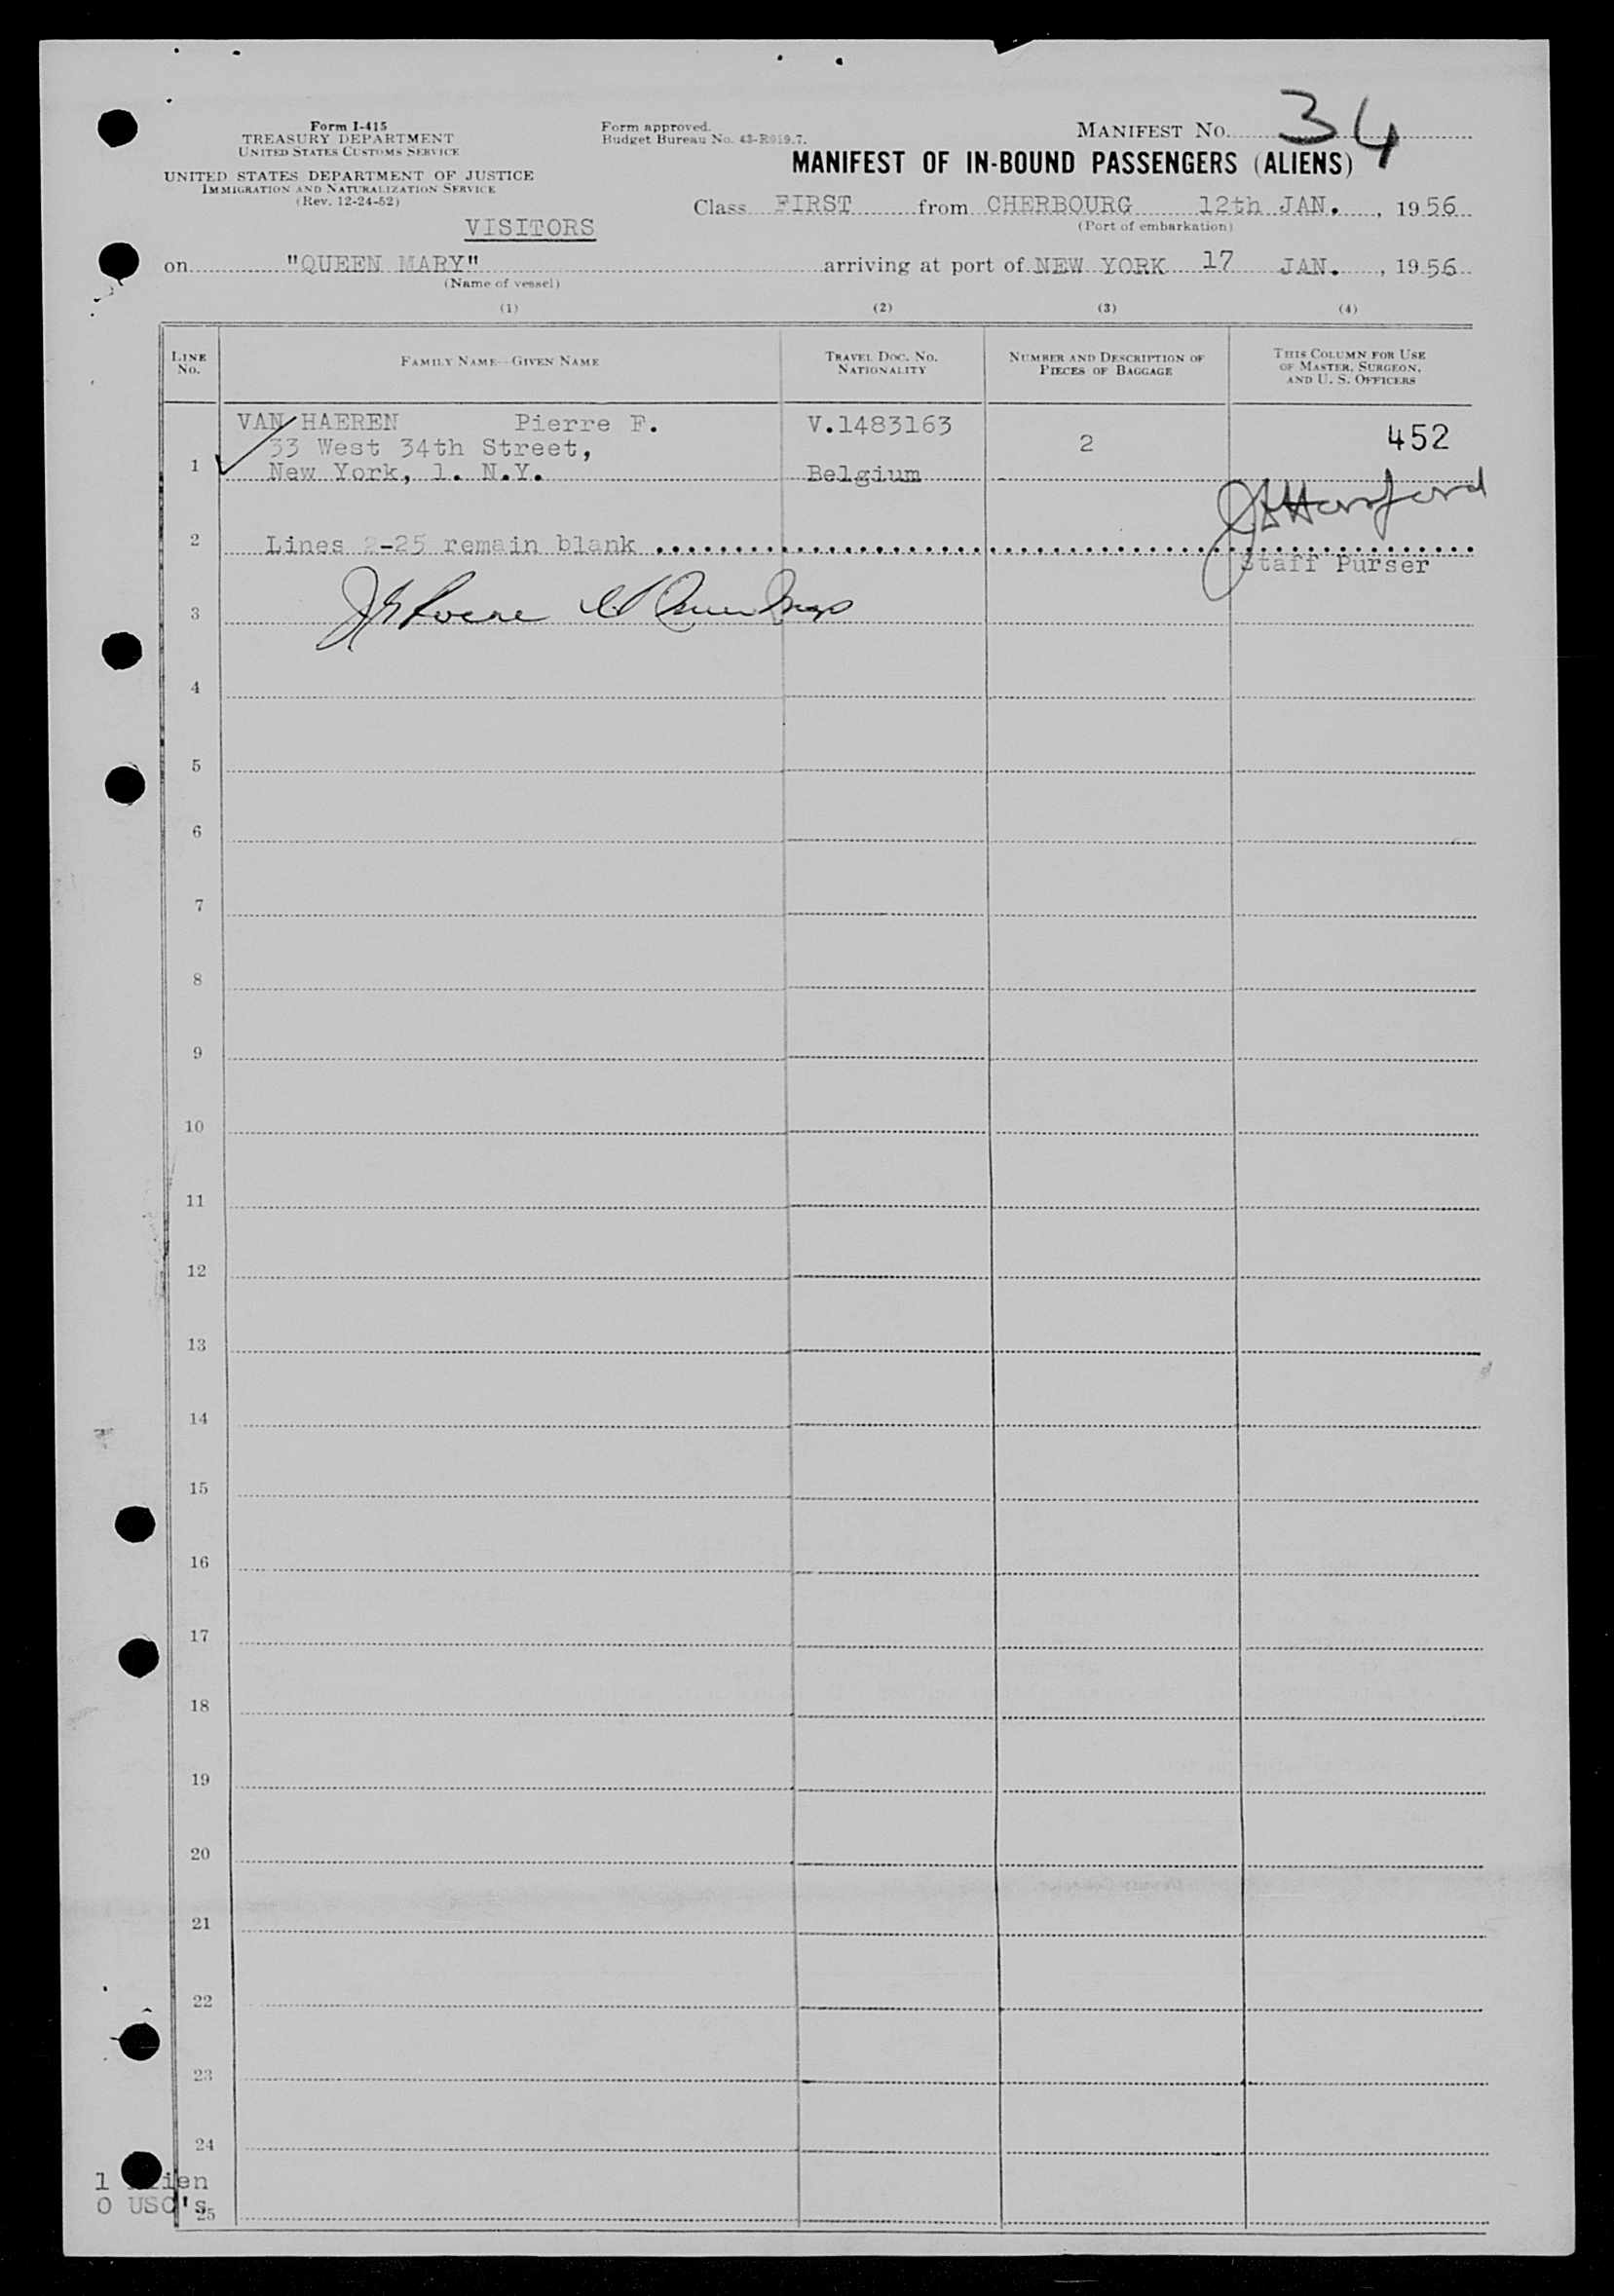 Form I-415
TREASURY DEPARTMENT
UNITED STATES CUSTOMS SERVICE
UNITED STATES DEPARTMENT OF JUSTICE
IMMIGRATION AND NATURALIZATION SERVICE
(Rev. 12-24-52)
Form approved.
Budget Bureau No. 43-R019.7.
MANIFEST No. 34
MANIFEST OF IN-BOUND PASSENGERS (ALIENS)
Class FIRST from CHERBOURG 12th JAN., 1956
(Port of embarkation)
VISITORS
on "QUEEN MARY" arriving at port of NEW YORK 17 JAN., 1956
(Name of vessel)
(1) (2) (3) (4)
LINE No. FAMILY NAME—GIVEN NAME TRAVEL DOC. NO. NATIONALITY NUMBER AND DESCRIPTION OF PIECES OF BAGGAGE THIS COLUMN FOR USE OF MASTER, SURGEON, AND U. S. OFFICERS
VAN HAEREN Pierre F. V.1483163
33 West 34th Street, 2 452
1 New York, 1. N.Y. Belgium
2 Lines 2-25 remain blank
Staff Purser
3
4
5
6
7
8
9
10
11
12
13
14
15
16
17
18
19
20
21
22
23
24
1 Alien
0 USC's
25